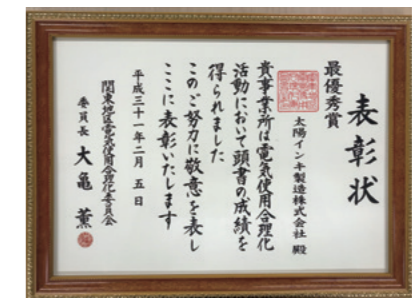 表彰状
最優秀賞
太陽インキ製造株式会社 殿
貴事業所は電気使用合理化
活動において頭書の成績を
得られました
このご努力に敬意を表し
ここに表彰いたします
平成三十一年二月 五日
関東地区電気使用合理化委員会
委員長 大亀 薫